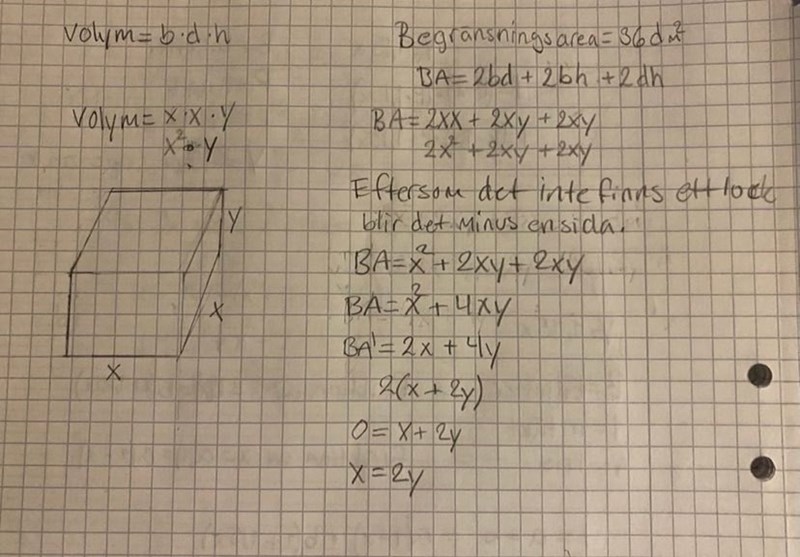 Volym = b·d·h
Volym = x·x·y
x²·y
y
x
x
Begränsningsarea = 36dm²
BA = 2bd + 2bh + 2dh
BA = 2xx + 2xy + 2xy
2x² + 2xy + 2xy
Eftersom det inte finns ett lock
blir det minus en sida.
BA = x² + 2xy + 2xy
BA = x² + 4xy
BA' = 2x + 4y
2(x + 2y)
0 = x + 2y
x = 2y